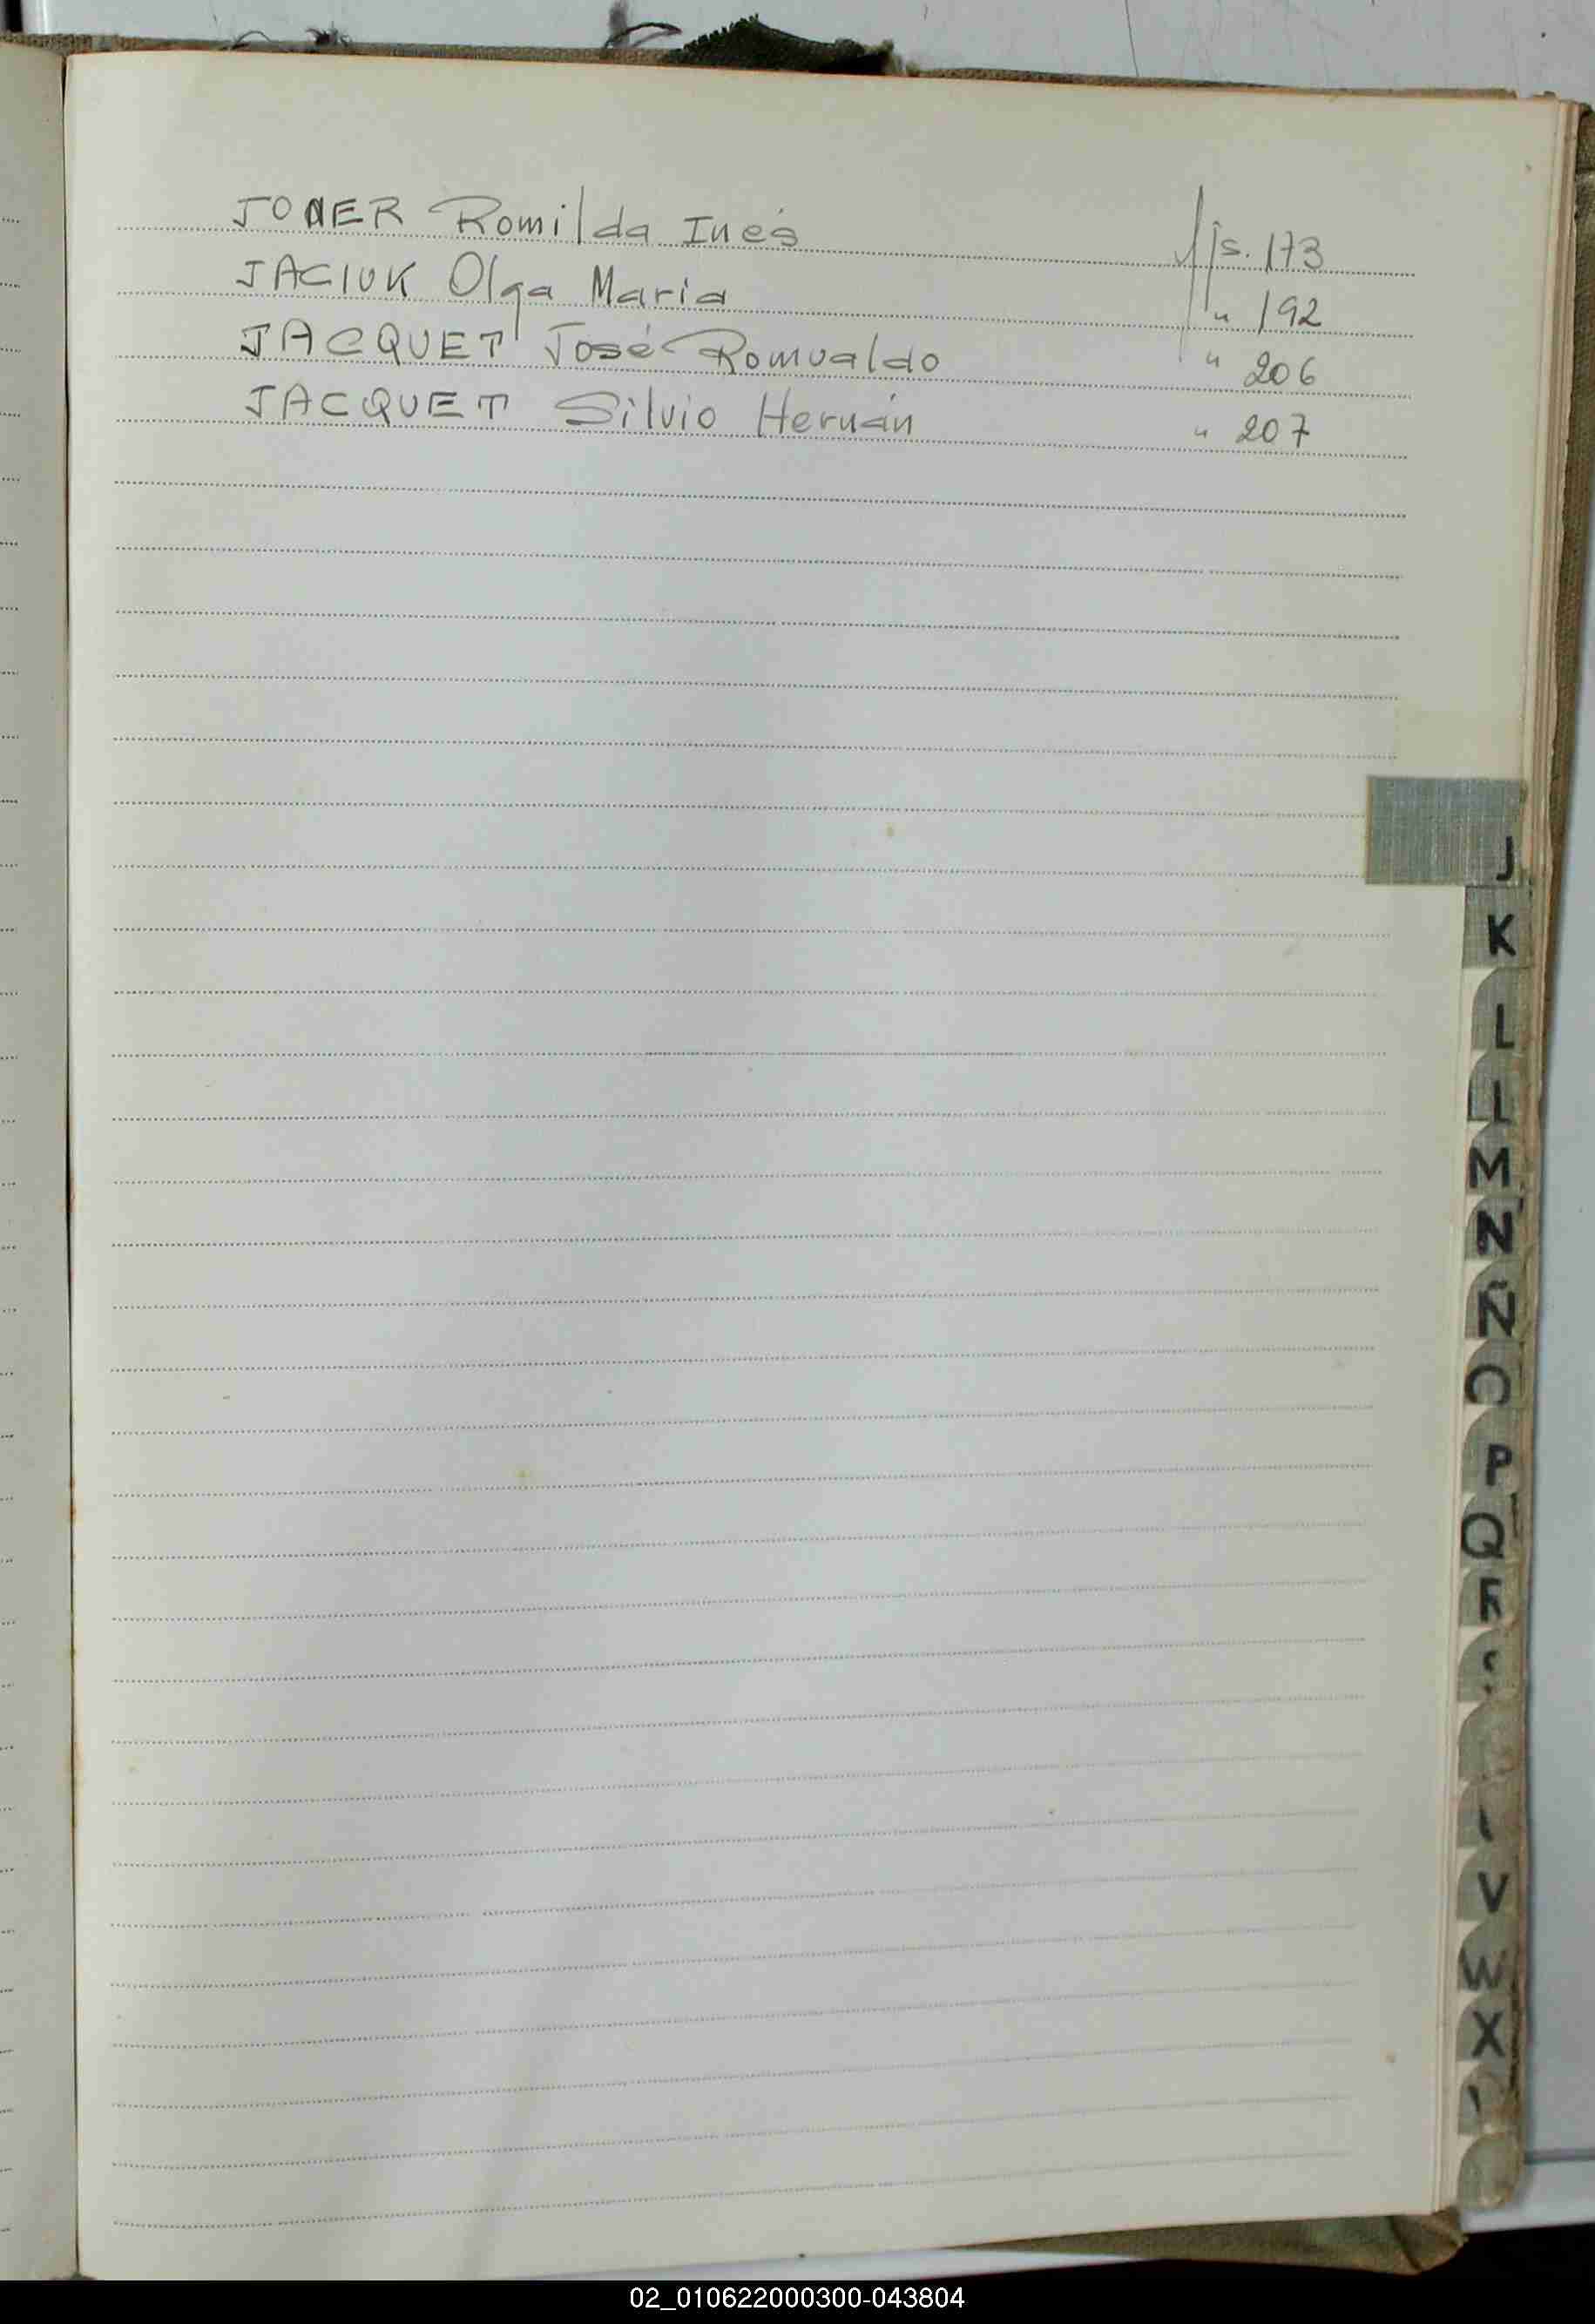 JONER Romilda Inés fjs. 173
JACIUK Olga Maria " 192
JACQUET José Romualdo " 206
JACQUET Silvio Hernán " 207
J
K
L
M
N
Ñ
O
P
Q
R
V
W
X
02_010622000300-043804